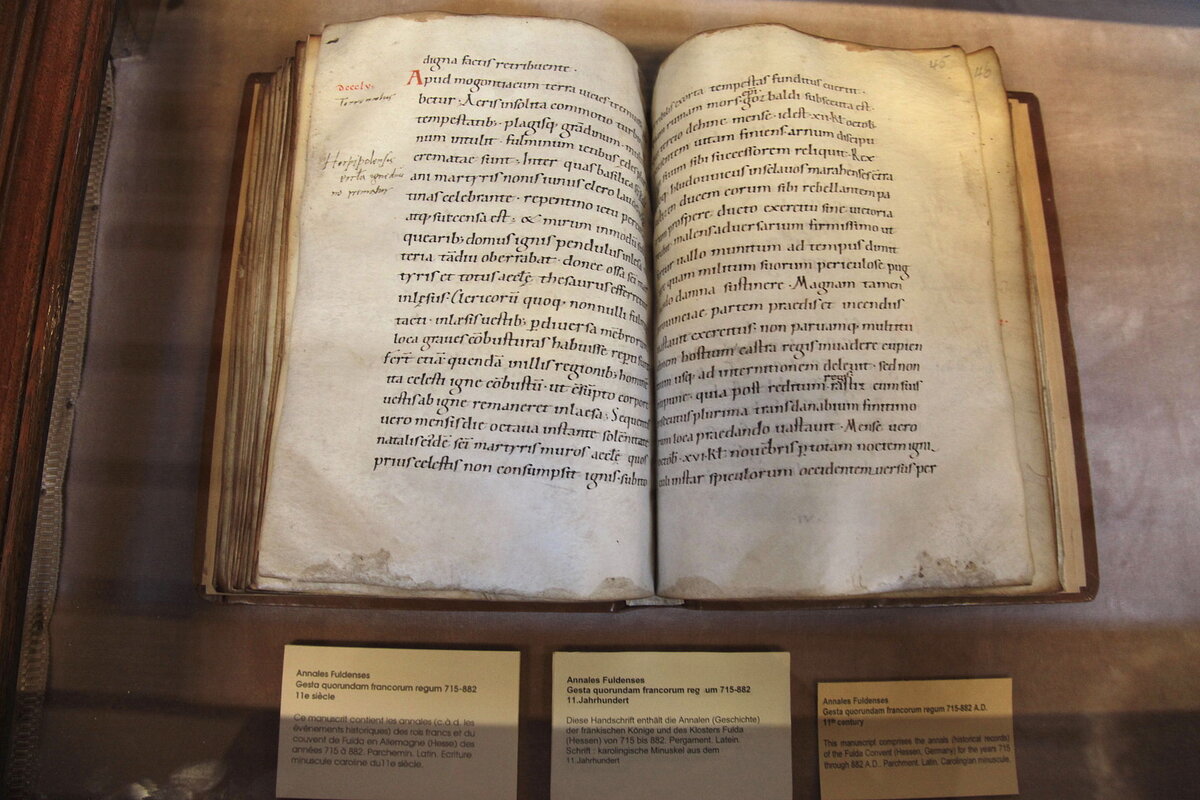 digna factis retribuente ·
dccclv,
Apud mogontiacum terra
betur · Aeris insolita commotio
tempestatib; plagisq; grādinum
num intulit · fulminum ictibus
crematae sunt · Inter quas basilica
ani martyris nonis iunii clero
tinas celebrante · repentino ictu
atq; succensa est · & mirum inmodū
quearib; domus ignis pendulus
teria tādiu oberrabat · donec ossa sci
tyris et totus aeccłę thesaurus efferretur
inlęsus Clericorū quoq; nonnulli
tacti · inlaesis uestib; p diuersa mēbrorum
loca graues cōbusturas habuisse
fert̄ etiā quendā in illis regionib;
ita celesti igne cōbustū · ut
uestis ab igne remaneret inlaesa ·
uero mensis die octaua instante solēnitate
natalis eiusdē sci martyris muros aeccłę quos
prius celestis non consumpsit ignis · subito
46
exorta tempestas funditus
epi ·
ruinam mors gozbaldi subsecuta est ·
tercio dehinc mense · idest · xii · kł octob̄
uitam finiens arnum discipu
suum sibi successorem reliquit · Rex
hludouuicus in sclauos marahenses
ducem eorum sibi rebellantem pa
prospere · ducto exercitu sine uictoria
malens aduersarium firmissimo ut
uallo munitum ad tempus
quam militum suorum periculose pug
damna sustinere · Magnam tamen
prouinciae partem praedis et incendiis
uastauit exercitus · non paruamq; multitu
dinem hostium castra regis inuadere cupien
usq; ad internitionem deleuit · sed non
regis
inpune · quia post reditum rastiz eum suis
insecutus plurima trans danubium finitimo
rum loca praedando uastauit · Mense uero
octob̄ · xvi · kł nouēbris p totam noctem igni
culi instar spiculorum occidentem uersus per
Annales Fuldenses
Gesta quorundam francorum regum 715-882
11e siècle
Ce manuscrit contient les annales (c.à.d. les
événements historiques) des rois francs et du
couvent de Fulda en Allemagne (Hesse) des
années 715 à 882. Parchemin. Latin. Ecriture
minuscule caroline du 11e siècle.
Annales Fuldenses
Gesta quorundam francorum reg um 715-882
11.Jahrhundert
Diese Handschrift enthält die Annalen (Geschichte)
der fränkischen Könige und des Klosters Fulda
(Hessen) von 715 bis 882. Pergament. Latein.
Schrift : karolingische Minuskel aus dem
11.Jahrhundert
Annales Fuldenses
Gesta quorundam francorum regum 715-882 A.D.
11th century
This manuscript comprises the annals (historical records)
of the Fulda Convent (Hessen, Germany) for the years 715
through 882 A.D.. Parchment. Latin. Carolingian minuscule.